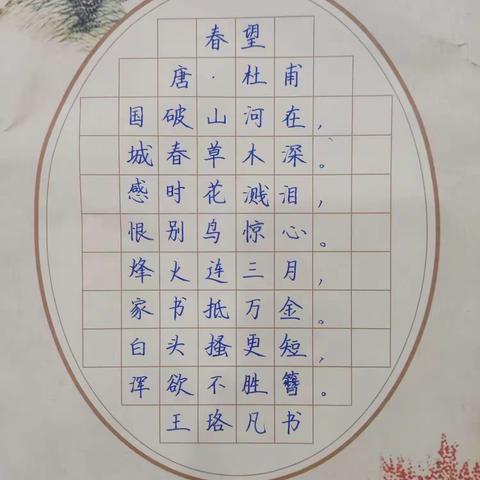 春望
唐·杜甫
国破山河在，
城春草木深。
感时花溅泪，
恨别鸟惊心。
烽火连三月，
家书抵万金。
白头搔更短，
浑欲不胜簪。
王珞凡书